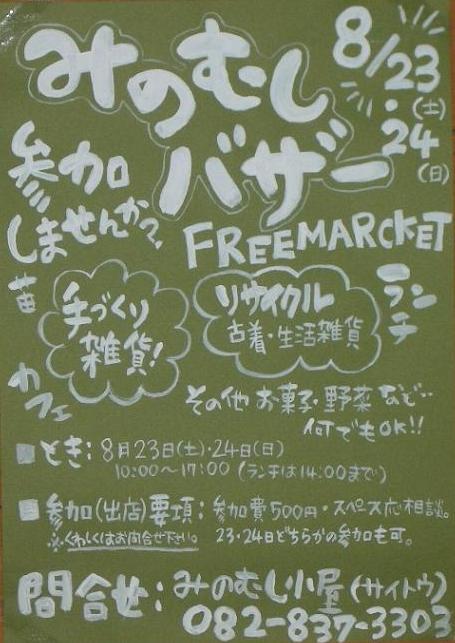 みのむし
バザー
8/23
・(土)
24
(日)
参加
しませんか?
FREEMARCKET
苗
手づくり
雑貨!
リサイクル
古着・生活雑貨
ランチ
カフェ
その他 お菓子・野菜 など…
何でもOK!!
とき: 8月23日(土)・24日(日)
10:00〜17:00 (ランチは14:00まで)
参加(出店)要項: 参加費500円・スペース応相談。
※くわしくはお問合せ下さい。 23・24日どちらかの参加も可。
問合せ: みのむし小屋(サイトウ)
082-837-3303